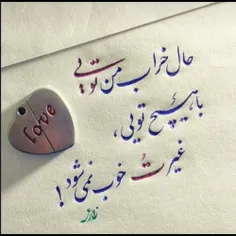 حال خراب من تویی
با هیچ تویی،
غیرت خوب نمی شود!
Love